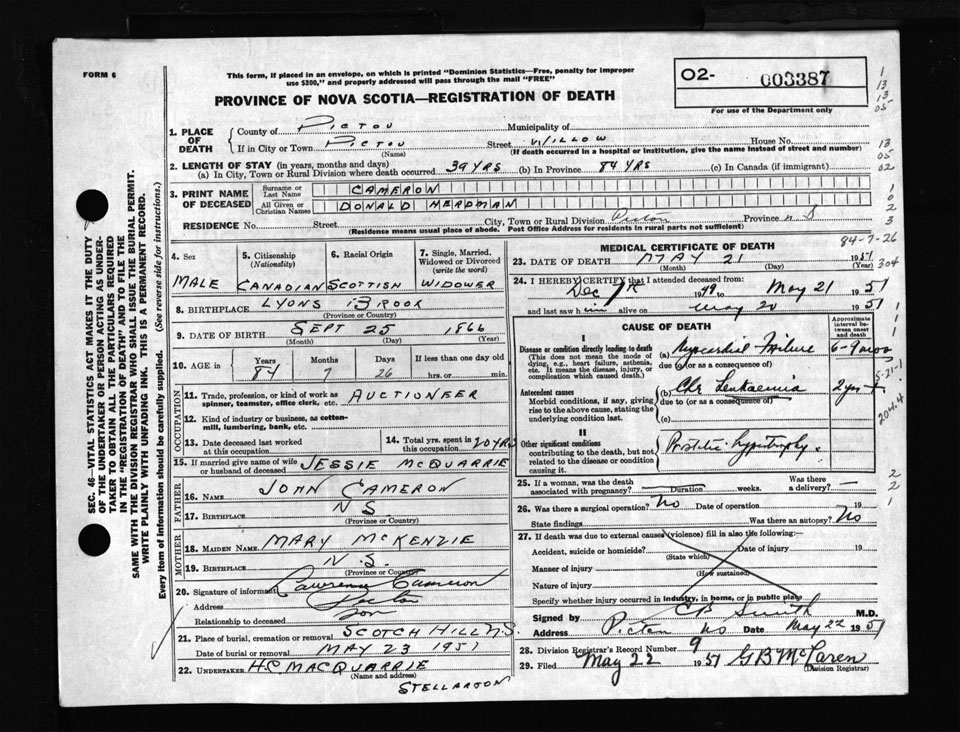 FORM 6
This form, if placed in an envelope, on which is printed "Dominion Statistics—Free, penalty for improper
use $300," and properly addressed will pass through the mail "FREE"
PROVINCE OF NOVA SCOTIA—REGISTRATION OF DEATH
O2- 003387
For use of the Department only
SEC. 46—VITAL STATISTICS ACT MAKES IT THE DUTY
OF THE UNDERTAKER OR PERSON ACTING AS UNDER-
TAKER TO OBTAIN ALL THE PARTICULARS REQUIRED
IN THE "REGISTRATION OF DEATH" AND TO FILE THE
SAME WITH THE DIVISION REGISTRAR WHO SHALL ISSUE THE BURIAL PERMIT.
WRITE PLAINLY WITH UNFADING INK. THIS IS A PERMANENT RECORD.
Every item of information should be carefully supplied. (See reverse side for instructions.)
1. PLACE OF DEATH
County of PICTOU Municipality of
If in City or Town PICTOU Street WILLOW House No.
(Name) (If death occurred in a hospital or institution, give the name instead of street and number)
2. LENGTH OF STAY (in years, months and days)
(a) In City, Town or Rural Division where death occurred 39 YRS (b) In Province 84 YRS (c) In Canada (if immigrant)
3. PRINT NAME OF DECEASED
Surname or Last Name CAMERON
All Given or Christian Names DONALD HERDMAN
RESIDENCE No. Street City, Town or Rural Division Pictou Province N S
(Residence means usual place of abode. Post Office Address for residents in rural parts not sufficient)
84-7-26
4. Sex MALE
5. Citizenship (Nationality) CANADIAN
6. Racial Origin SCOTTISH
7. Single, Married, Widowed or Divorced (write the word) WIDOWER
8. BIRTHPLACE LYONS BROOK
(Province or Country)
9. DATE OF BIRTH SEPT 25 1866
(Month) (Day) (Year)
10. AGE in Years 84 Months 7 Days 26 If less than one day old hrs. or min.
OCCUPATION
11. Trade, profession, or kind of work as spinner, teamster, office clerk, etc. AUCTIONEER
12. Kind of industry or business, as cotton-mill, lumbering, bank, etc.
13. Date deceased last worked at this occupation
14. Total yrs. spent in this occupation 20 YRS
15. If married give name of wife or husband of deceased JESSIE McQUARRIE
FATHER
16. NAME JOHN CAMERON
17. BIRTHPLACE N S.
(Province or Country)
MOTHER
18. MAIDEN NAME MARY McKENZIE
19. BIRTHPLACE N. S.
(Province or Country)
20. Signature of informant Lawrence Cameron
Address Pictou
Relationship to deceased Son
21. Place of burial, cremation or removal SCOTCH HILL N.S
Date of burial or removal MAY 23 1951
22. UNDERTAKER H.C. MACQUARRIE
(Name and address)
STELLARTON
MEDICAL CERTIFICATE OF DEATH
23. DATE OF DEATH MAY 21 1951
(Month) (Day) (Year)
24. I HEREBY CERTIFY that I attended deceased from:
Dec 1949 to May 21 1951
and last saw him alive on May 20 1951
CAUSE OF DEATH
Approximate interval between onset and death
I
Disease or condition directly leading to death
(This does not mean the mode of dying, e.g., heart failure, asthenia, etc. It means the disease, injury, or complication which caused death.)
(a) Myocardial Failure 6-9 mos
due to (or as a consequence of)
Antecedent causes
Morbid conditions, if any, giving rise to the above cause, stating the underlying condition last.
(b) Chr Leukaemia 2 yrs
due to (or as a consequence of)
(c)
II
Other significant conditions
contributing to the death, but not related to the disease or condition causing it.
Prostatic hypertrophy.
25. If a woman, was the death associated with pregnancy? — Duration weeks. Was there a delivery? —
26. Was there a surgical operation? No Date of operation 19
State findings Was there an autopsy? No
27. If death was due to external causes (violence) fill in also the following:—
Accident, suicide or homicide? Date of injury 19
(State which)
Manner of injury
(How sustained)
Nature of injury
Specify whether injury occurred in industry, in home, or in public place
Signed by C B Smith M.D.
Address Pictou NS Date May 22 1951
28. Division Registrar's Record Number 9
29. Filed May 22 1951 G B McLaren
(Division Registrar)